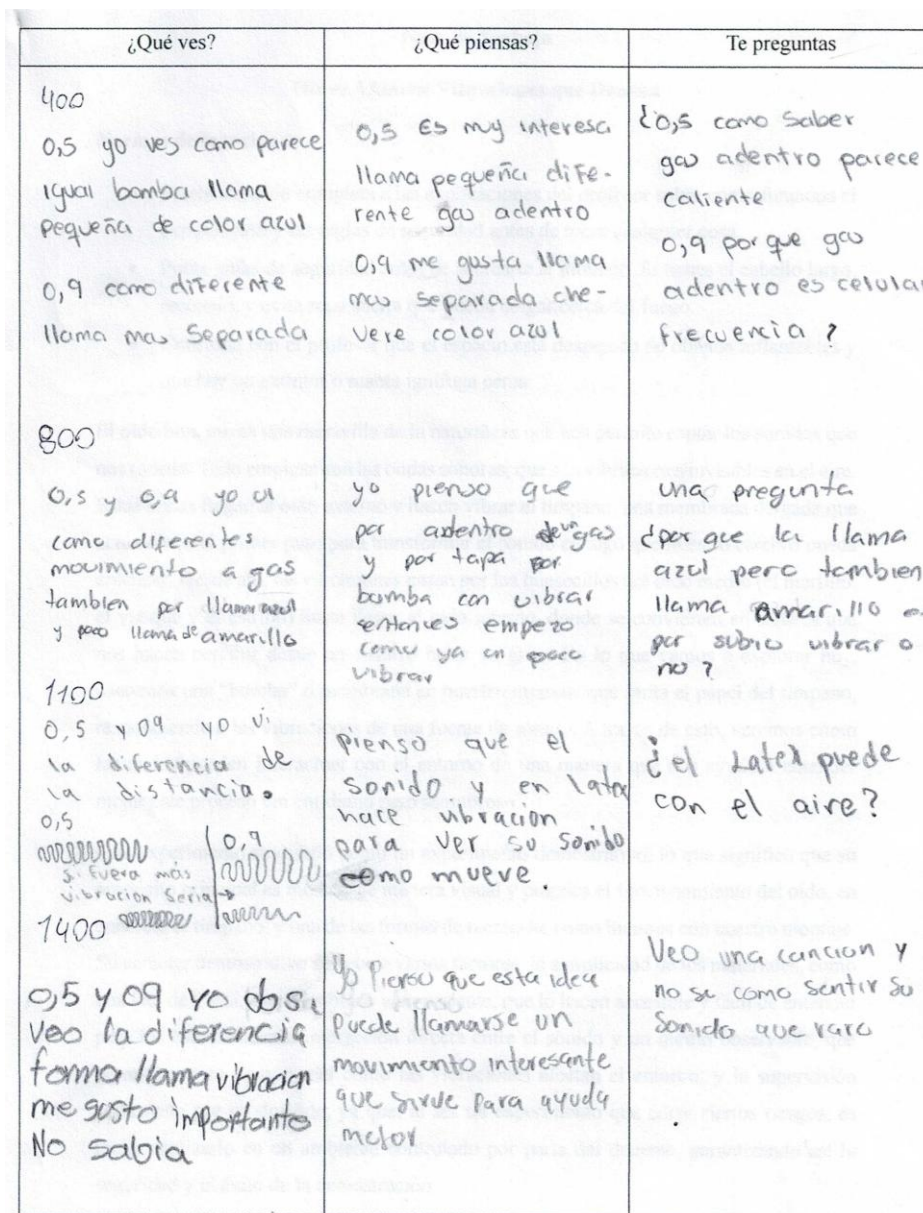 ¿Qué ves?
¿Qué piensas?
Te preguntas
400
0,5 yo ves como parece
igual bomba llama
pequeña de color azul
0,9 como diferente
llama mas separada
0,5 Es muy interesa
llama pequeña dife-
rente gas adentro
0,9 me gusta llama
mas separada che-
vere color azul
¿0,5 como saber
gas adentro parece
caliente
0,9 por que gas
adentro es celular
frecuencia?
800
0,5 y 0,9 yo vi
como diferentes
movimiento a gas
tambien por llama azul
y poco llama de amarillo
yo pienso que
por adentro gas
y por tapa por
bomba con vibrar
entonces empezo
como ya en
vibrar
una pregunta
¿porque la llama
azul pero tambien
llama amarillo
por subio vibrar o
no?
1100
0,5 y 09 yo vi
la diferencia de
la distancia.
0,5
0,9
si fuera más
vibracion seria →
pienso que el
sonido y en lata
hace vibracion
para ver su sonido
como mueve.
¿el Latex puede
con el aire?
1400
0,5 y 09 yo dos
veo la diferencia
forma llama vibracion
me gusto importante
No sabia
Yo pienso que esta idea
puede llamarse un
movimiento interesante
que sirve para ayuda
motor
Veo una cancion y
no se como sentir su
sonido que raro